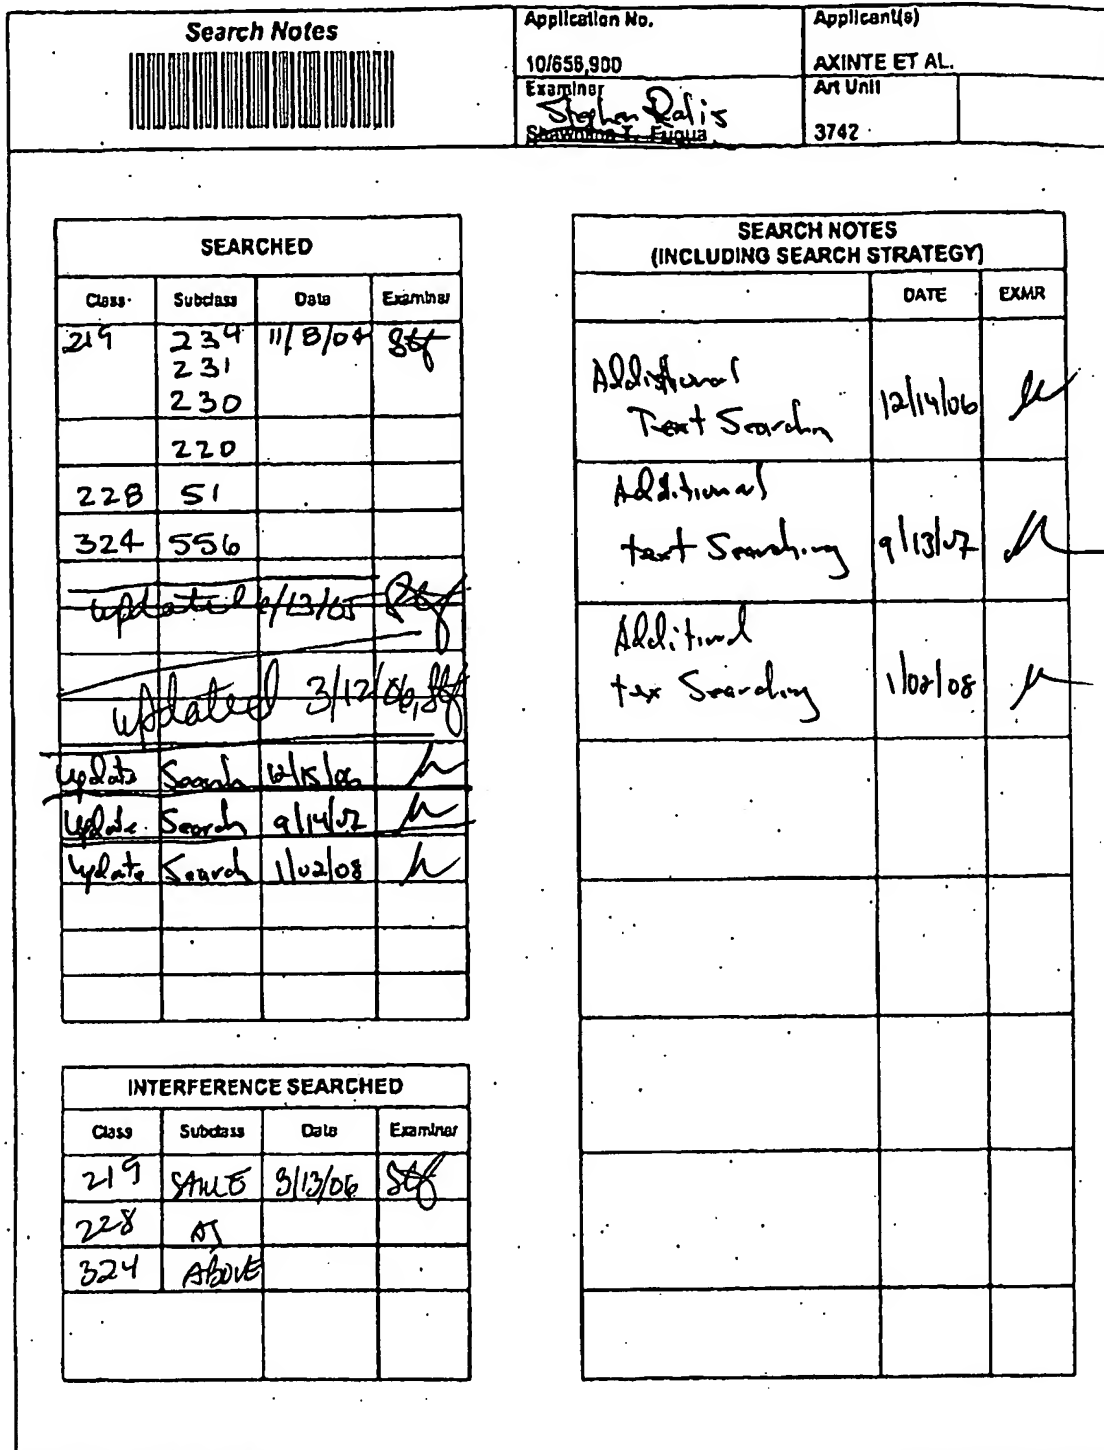 Search Notes
Application No.
Applicant(s)
10/656,900
AXINTE ET AL.
Examiner
Art Unit
Stephen Ralis
Shawntina T. Fuqua
3742
SEARCHED
Class Subclass Date Examiner
219 234 11/8/04 Stf
231
230
220
228 51
324 556
updated /13/05 Stf
updated 3/12/06, Stf
update Search 12/15/06
Update Search 9/14/07
Update Search 1/02/08
INTERFERENCE SEARCHED
Class Subclass Date Examiner
219 SAME 3/13/06 Stf
228 AS
324 ABOVE
SEARCH NOTES
(INCLUDING SEARCH STRATEGY)
DATE EXMR
Additional
Text Searching 12/14/06
Additional
text Searching 9/13/07
Additional
tex Searching 1/02/08